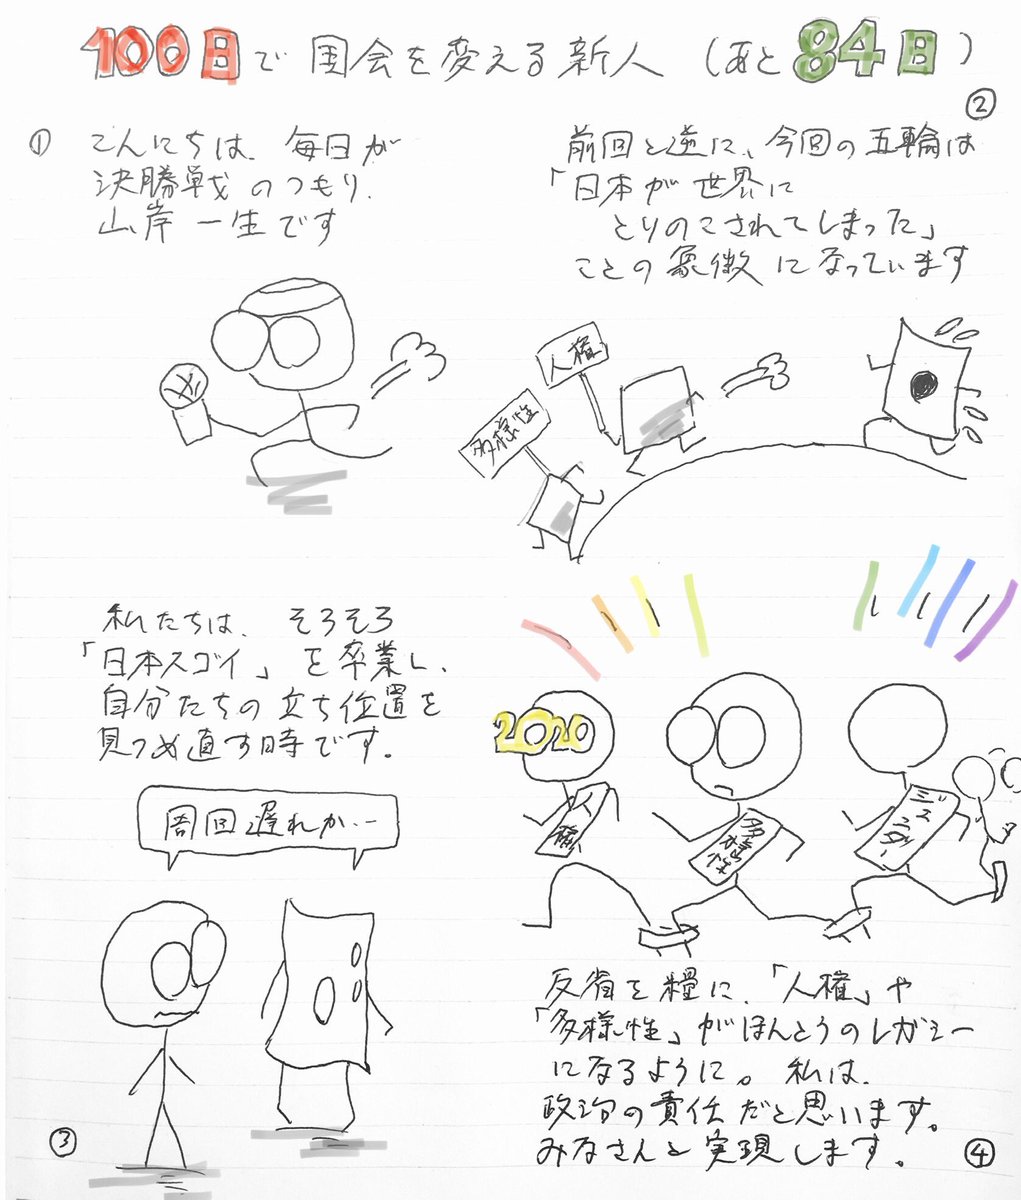 100日で国会を変える新人(あと84日)
①
こんにちは、毎日が
決勝戦のつもり、
山岸一生です
②
前回と逆に、今回の五輪は
「日本が世界に
とりのこされてしまった」
ことの象徴になっています
人権
多様性
私たちは、そろそろ
「日本スゴイ」を卒業し、
自分たちの立ち位置を
見つめ直す時です。
周回遅れか…
③
2020
多様性
ジェンダー
反省を糧に、「人権」や
「多様性」がほんとうのレガシー
になるように。私は、
政治の責任だと思います。
みなさんと実現します。
④